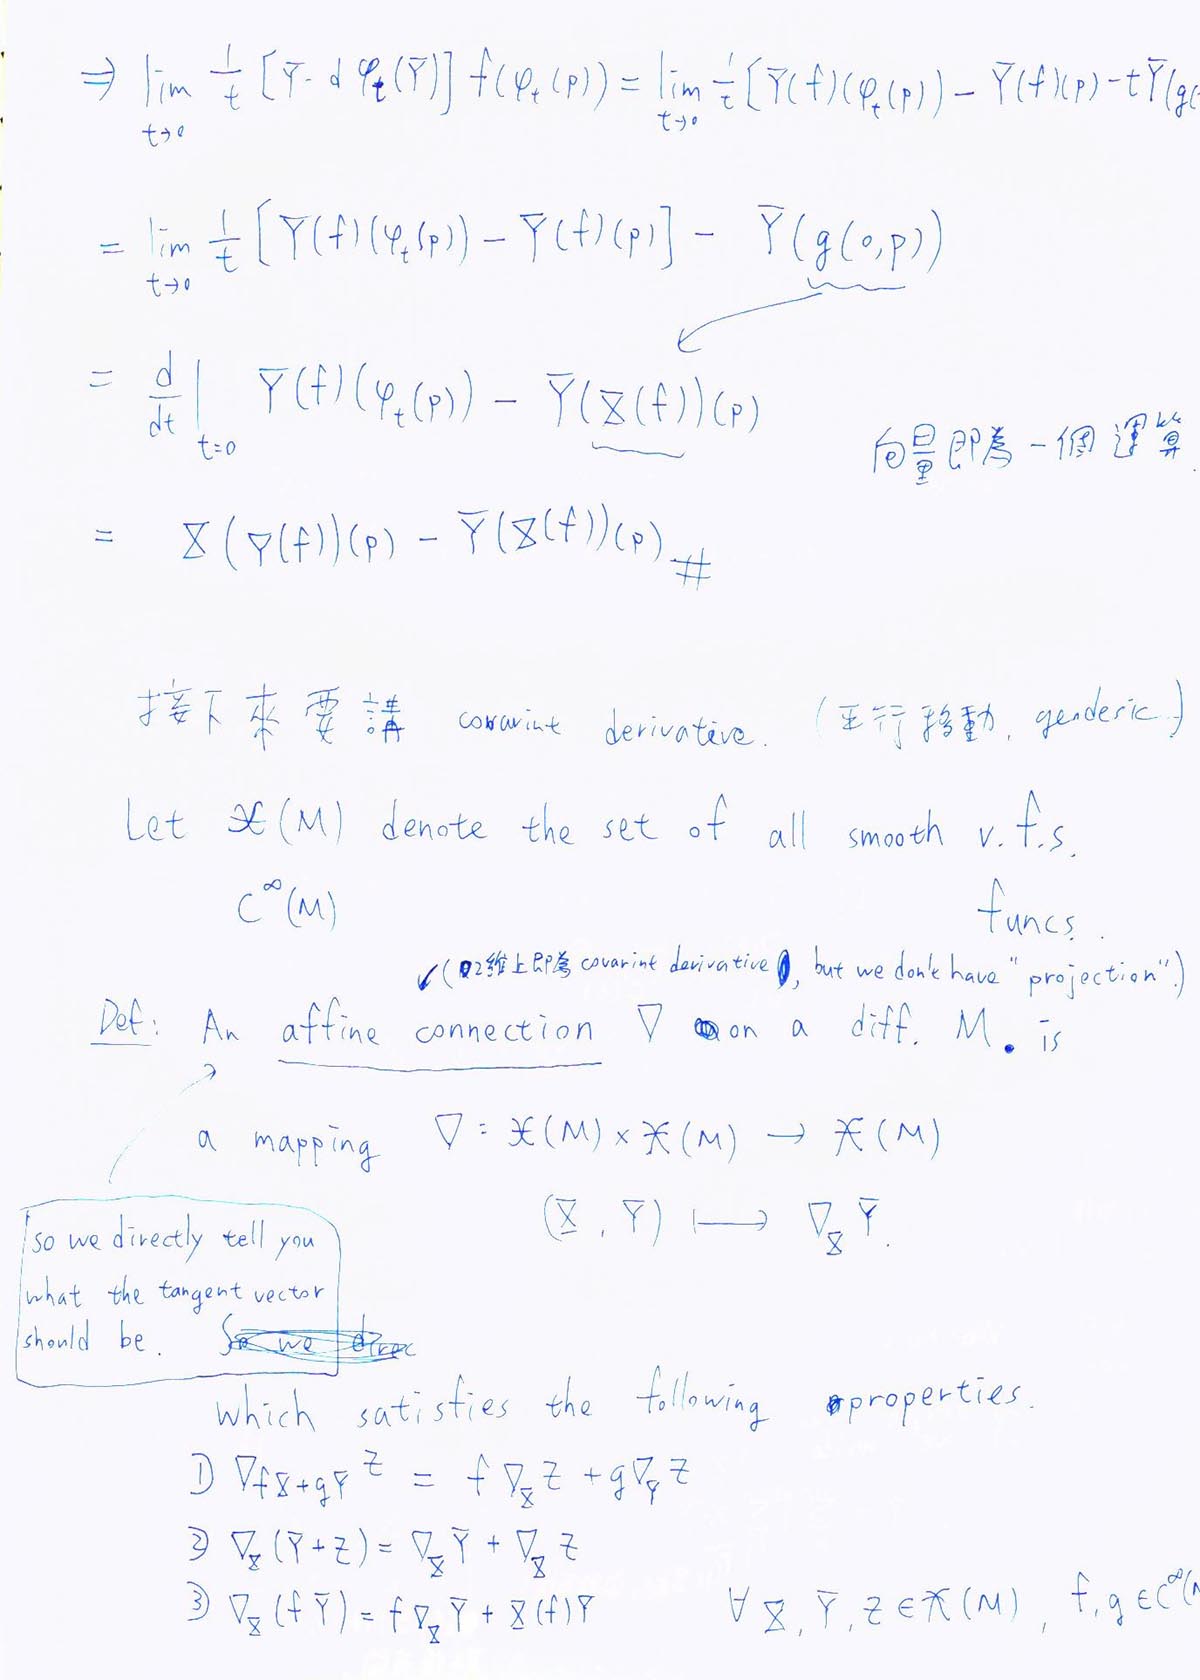 ⇒ lim_{t→0} 1/t [Ȳ - dφ_t(Ȳ)] f(φ_t(p)) = lim_{t→0} 1/t [Ȳ(f)(φ_t(p)) - Ȳ(f)(p) - tȲ(g(
= lim_{t→0} 1/t [Ȳ(f)(φ_t(p)) - Ȳ(f)(p)] - Ȳ(g(0,p))
= d/dt |_{t=0} Ȳ(f)(φ_t(p)) - Ȳ(X(f))(p)
向量即為一個運算.
= X(Y(f))(p) - Ȳ(X(f))(p) #
接下來要講 covarint derivative. (平行移動, gendesic.)
Let 𝔛(M) denote the set of all smooth v.f.s.
C^∞(M) funcs.
(2維上即為 covarint derivative, but we don't have "projection".)
Def: An affine connection ∇ on a diff. M. is
a mapping ∇: 𝔛(M) × 𝔛(M) → 𝔛(M)
(X, Ȳ) ⟼ ∇_X Ȳ.
so we directly tell you
what the tangent vector
should be. So we direc
which satisfies the following properties.
1) ∇_{fX+gY} Z = f∇_X Z + g∇_Y Z
2) ∇_X (Ȳ+Z) = ∇_X Ȳ + ∇_X Z
3) ∇_X (fȲ) = f∇_X Ȳ + X(f)Y ∀ X, Ȳ, Z ∈ 𝔛(M), f,g ∈ C^∞(M